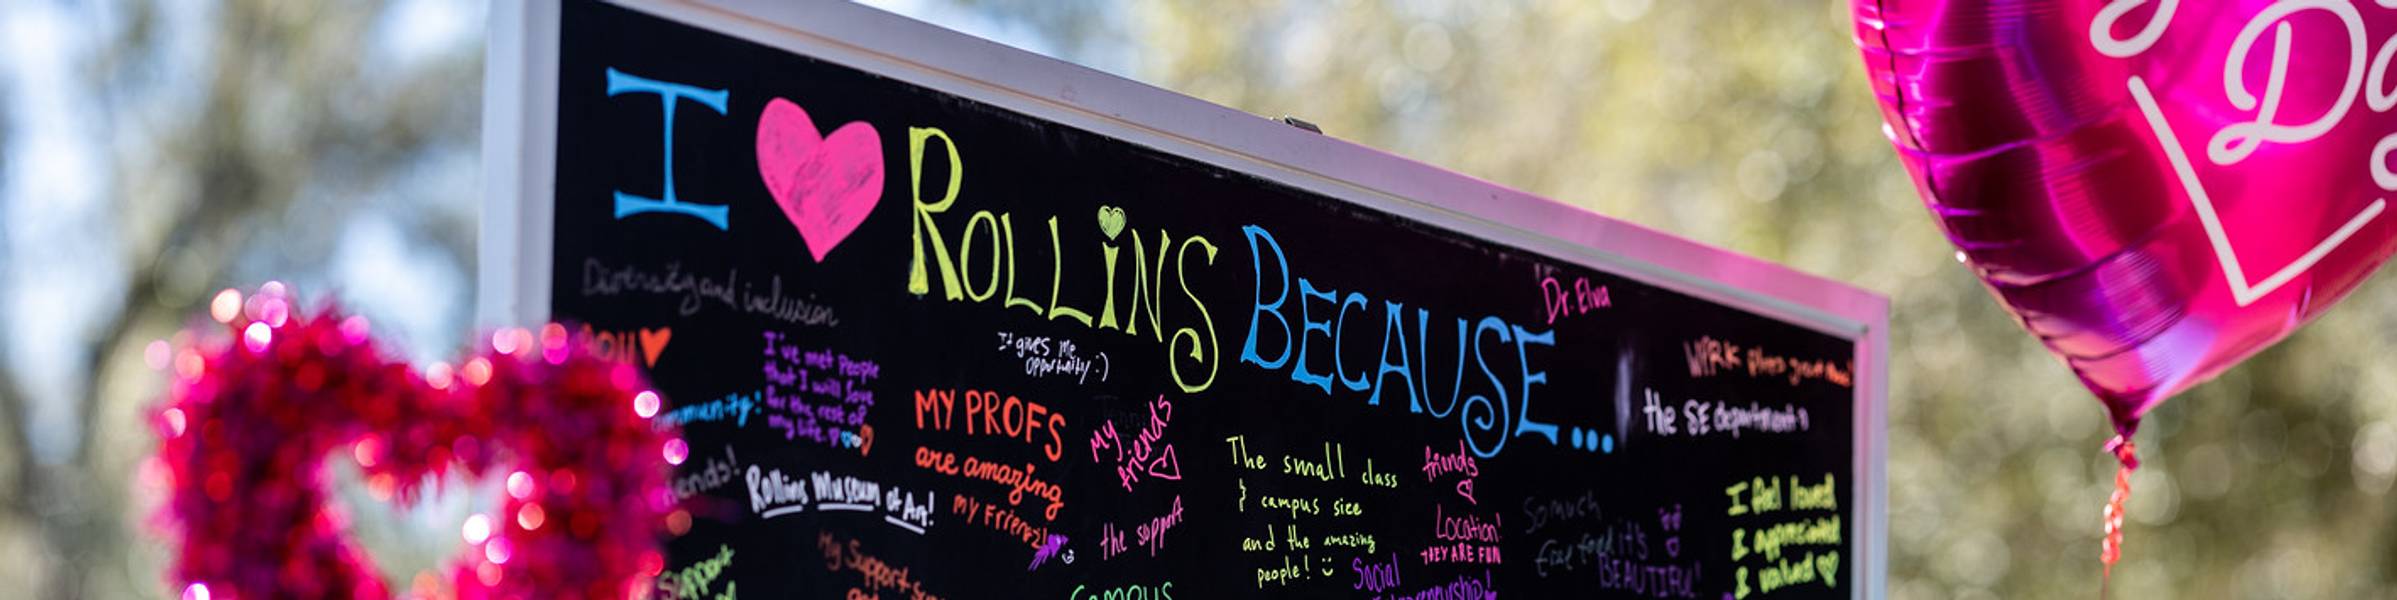 I ♥ ROLLINS BECAUSE...
Diversity and inclusion
Dr. Elva
It gives me
opportunity :)
I've met People
that I will love
for the rest of
my life.
MY PROFS
are amazing
my Friends!
My
friends
the support
Rollins Museum of Art!
The small class
& campus size
and the amazing
people!
friends
Location!
THEY ARE FUN
Social
WPRK
the SE department
So much
it's
BEAUTIFUL!
I feel loved
I appreciated
I valued
Support
My Support
CAMPUS
Da